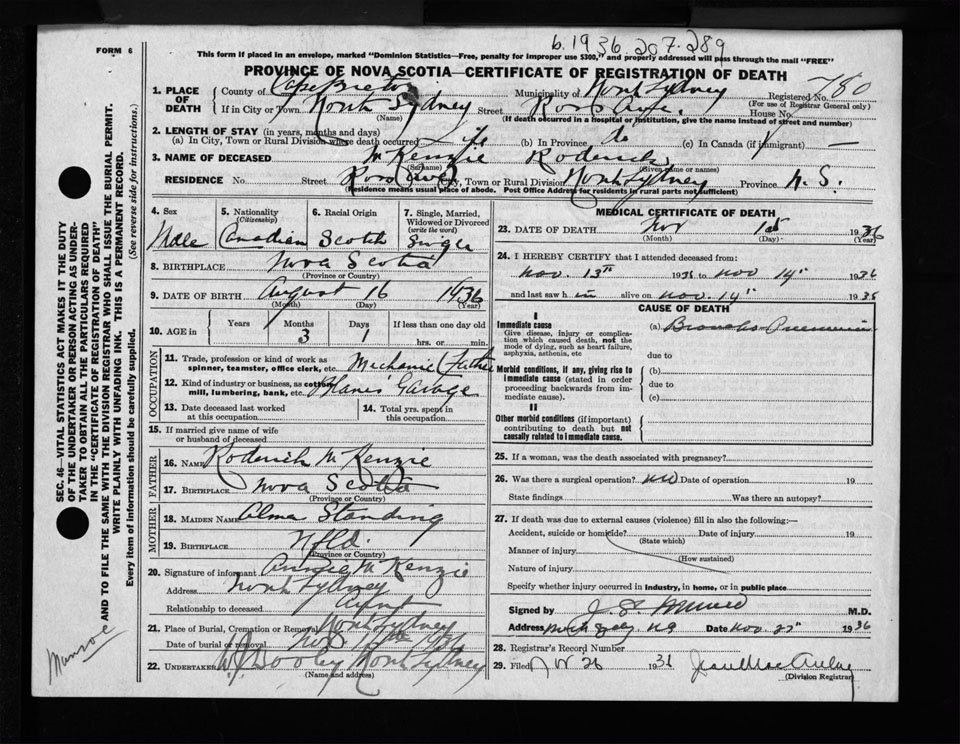 FORM 6
6.1936.207.289
This form if placed in an envelope, marked "Dominion Statistics—Free, penalty for improper use $300," and properly addressed will pass through the mail "FREE"
PROVINCE OF NOVA SCOTIA—CERTIFICATE OF REGISTRATION OF DEATH
1. PLACE OF DEATH County of Cape Breton Municipality of North Sydney Registered No. 780
(For use of Registrar General only)
If in City or Town North Sydney Street Ross Ave. House No.
(Name) (If death occurred in a hospital or institution, give the name instead of street and number)
2. LENGTH OF STAY (in years, months and days)
(a) In City, Town or Rural Division where death occurred life (b) In Province do (c) In Canada (if immigrant) —
3. NAME OF DECEASED McKenzie Roderick
(Surname) (Given name or names)
RESIDENCE No. Street Ross Ave City, Town or Rural Division North Sydney Province N.S.
(Residence means usual place of abode. Post Office Address for residents in rural parts not sufficient)
4. Sex
Male
5. Nationality
(Citizenship)
Canadian
6. Racial Origin
Scotch
7. Single, Married, Widowed or Divorced
(write the word)
Single
8. BIRTHPLACE Nova Scotia
(Province or Country)
9. DATE OF BIRTH August 16 1936
(Month) (Day) (Year)
10. AGE in Years Months Days If less than one day old
3 1 hrs. or min.
OCCUPATION
11. Trade, profession or kind of work as
spinner, teamster, office clerk, etc. Mechanic (Father
12. Kind of industry or business, as cotton
mill, lumbering, bank, etc. Garage
13. Date deceased last worked
at this occupation
14. Total yrs. spent in
this occupation
15. If married give name of wife
or husband of deceased
FATHER
16. NAME Roderick McKenzie
17. BIRTHPLACE Nova Scotia
(Province or Country)
MOTHER
18. MAIDEN NAME Alma Standing
19. BIRTHPLACE Nfld.
(Province or Country)
20. Signature of informant Annie McKenzie
Address North Sydney
Relationship to deceased Aunt
21. Place of Burial, Cremation or Removal North Sydney
Date of burial or removal 1936
22. UNDERTAKER Dooley North Sydney
(Name and address)
MEDICAL CERTIFICATE OF DEATH
23. DATE OF DEATH Nov 1936
(Month) (Day) (Year)
24. I HEREBY CERTIFY that I attended deceased from:
Nov. 13th 1936 to Nov 14th 1936
and last saw him alive on Nov. 14th 1936
CAUSE OF DEATH
I
Immediate cause
Give disease, injury or complication which caused death, not the mode of dying, such as heart failure, asphyxia, asthenia, etc
(a) Broncho Pneumonia
due to
Morbid conditions, if any, giving rise to immediate cause (stated in order proceeding backwards from immediate cause).
(b)
due to
(c)
II
Other morbid conditions (if important) contributing to death but not causally related to immediate cause.
25. If a woman, was the death associated with pregnancy?
26. Was there a surgical operation? no Date of operation 19
State findings Was there an autopsy?
27. If death was due to external causes (violence) fill in also the following:—
Accident, suicide or homicide? Date of injury 19
(State which)
Manner of injury
(How sustained)
Nature of injury
Specify whether injury occurred in industry, in home, or in public place
Signed by M.D.
Address North Sydney, N.S Date Nov. 1936
28. Registrar's Record Number
29. Filed Nov 26 1936
(Division Registrar)
SEC. 46—VITAL STATISTICS ACT MAKES IT THE DUTY
OF THE UNDERTAKER OR PERSON ACTING AS UNDER-
TAKER TO OBTAIN ALL THE PARTICULARS REQUIRED
IN THE "CERTIFICATE OF REGISTRATION OF DEATH"
AND TO FILE THE SAME WITH THE DIVISION REGISTRAR WHO SHALL ISSUE THE BURIAL PERMIT.
WRITE PLAINLY WITH UNFADING INK. THIS IS A PERMANENT RECORD.
Every item of information should be carefully supplied. (See reverse side for instructions.)
Munroe